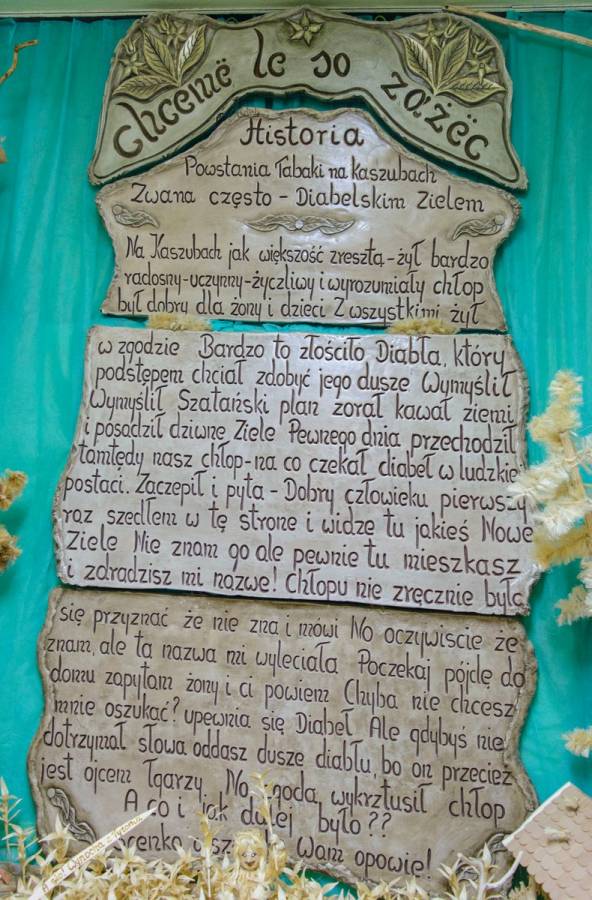 chcemë le so zażëc
Historia
Powstania Tabaki na Kaszubach
Zwana często - Diabelskim Zielem
Na Kaszubach jak większość zresztą - żył bardzo
radosny-uczynny-życzliwy i wyrozumiały chłop
był dobry dla żony i dzieci Z wszystkimi żył
w zgodzie Bardzo to złościło Diabła, który
podstępem chciał zdobyć jego dusze Wymyślił
Wymyślił Szatański plan zorał kawał ziemi
i posadził dziwne Ziele Pewnego dnia przechodził
tamtędy nasz chłop-na co czekał diabeł w
postaci. Zaczepił i pyta - Dobry człowieku pierwszy
raz szedłem w tę strone i widze tu jakieś Nowe
Ziele Nie znam go ale pewnie tu mieszkasz
i zdradzisz mi nazwe! Chłopu nie zręcznie było
się przyznać że nie zna i mówi No oczywiscie że
znam, ale ta nazwa mi wyleciała Poczekaj pójdę do
domu zapytam żony i ci powiem Chyba nie chcesz
mnie oszukać? upewnia się Diabeł Ale gdybyś nie
dotrzymał słowa oddasz dusze diabłu, bo on przecież
jest ojcem łgarzy. No zgoda wykrztusił chłop
A co i jak dalej było??
Wam opowie!